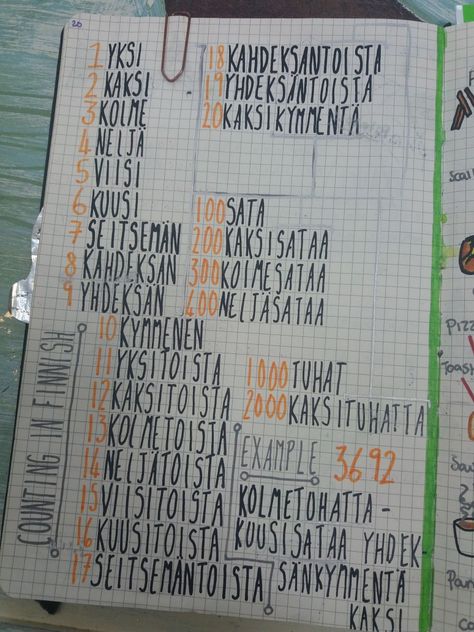 20
1 YKSI
2 KAKSI
3 KOLME
4 NELJÄ
5 VIISI
6 KUUSI
7 SEITSEMÄN
8 KAHDEKSAN
9 YHDEKSÄN
10 KYMMENEN
11 YKSITOISTA
12 KAKSITOISTA
13 KOLMETOISTA
14 NELJÄTOISTA
15 VIISITOISTA
16 KUUSITOISTA
17 SEITSEMÄNTOISTA
18 KAHDEKSANTOISTA
19 YHDEKSÄNTOISTA
20 KAKSIKYMMENTÄ
100 SATA
200 KAKSISATAA
300 KOLMESATAA
400 NELJÄSATAA
1000 TUHAT
2000 KAKSITUHATTA
EXAMPLE 3692
KOLMETUHATTA-
KUUSISATAA YHDEK
SÄNKYMMENTÄ
KAKSI
COUNTING IN FINNISH